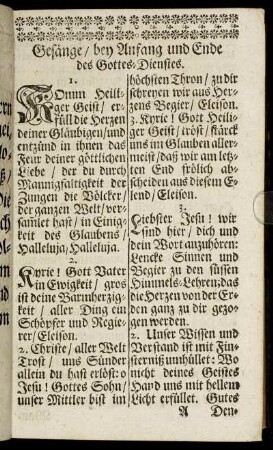 Gesänge / bey Anfang und Ende
des Gottes-Dienstes.
1.
KOmm Heili-
ger Geist / er-
füll die Herzen
deiner Gläubigen / und
entzünd in ihnen das
Feur deiner göttlichen
Liebe / der du durch
Mannigfaltigkeit der
Zungen die Völcker /
der ganzen Welt / ver-
samlet hast / in Einig-
keit des Glaubens /
Halleluja / Halleluja.
2.
Kyrie! Gott Vater
in Ewigkeit / gros
ist deine Barmherzig-
keit / aller Ding ein
Schöpfer und Regie-
rer / Eleison.
2. Christe / aller Welt
Trost / uns Sünder
allein du hast erlöst: o
Jesu! Gottes Sohn /
unser Mittler bist im
höchsten Thron / zu dir
schreyen wir aus Her-
zens Begier / Eleison.
3. Kyrie! Gott Heili-
ger Geist / tröst / stärck
uns im Glauben aller-
meist / daß wir am letz-
ten End frölich ab-
scheiden aus diesem E-
lend / Eleison.
3.
Liebster Jesu! wir
sind hier / dich und
dein Wort anzuhören:
Lencke Sinnen und
Begier zu den süssen
Himmels-Lehren; das
die Herzen von der Er-
den ganz zu dir gezo-
gen werden.
2. Unser Wissen und
Verstand ist mit Fin-
sterniß umhüllet: Wo
nicht deines Geistes
Hand uns mit hellem
Licht erfüllet. Gutes
A Den-